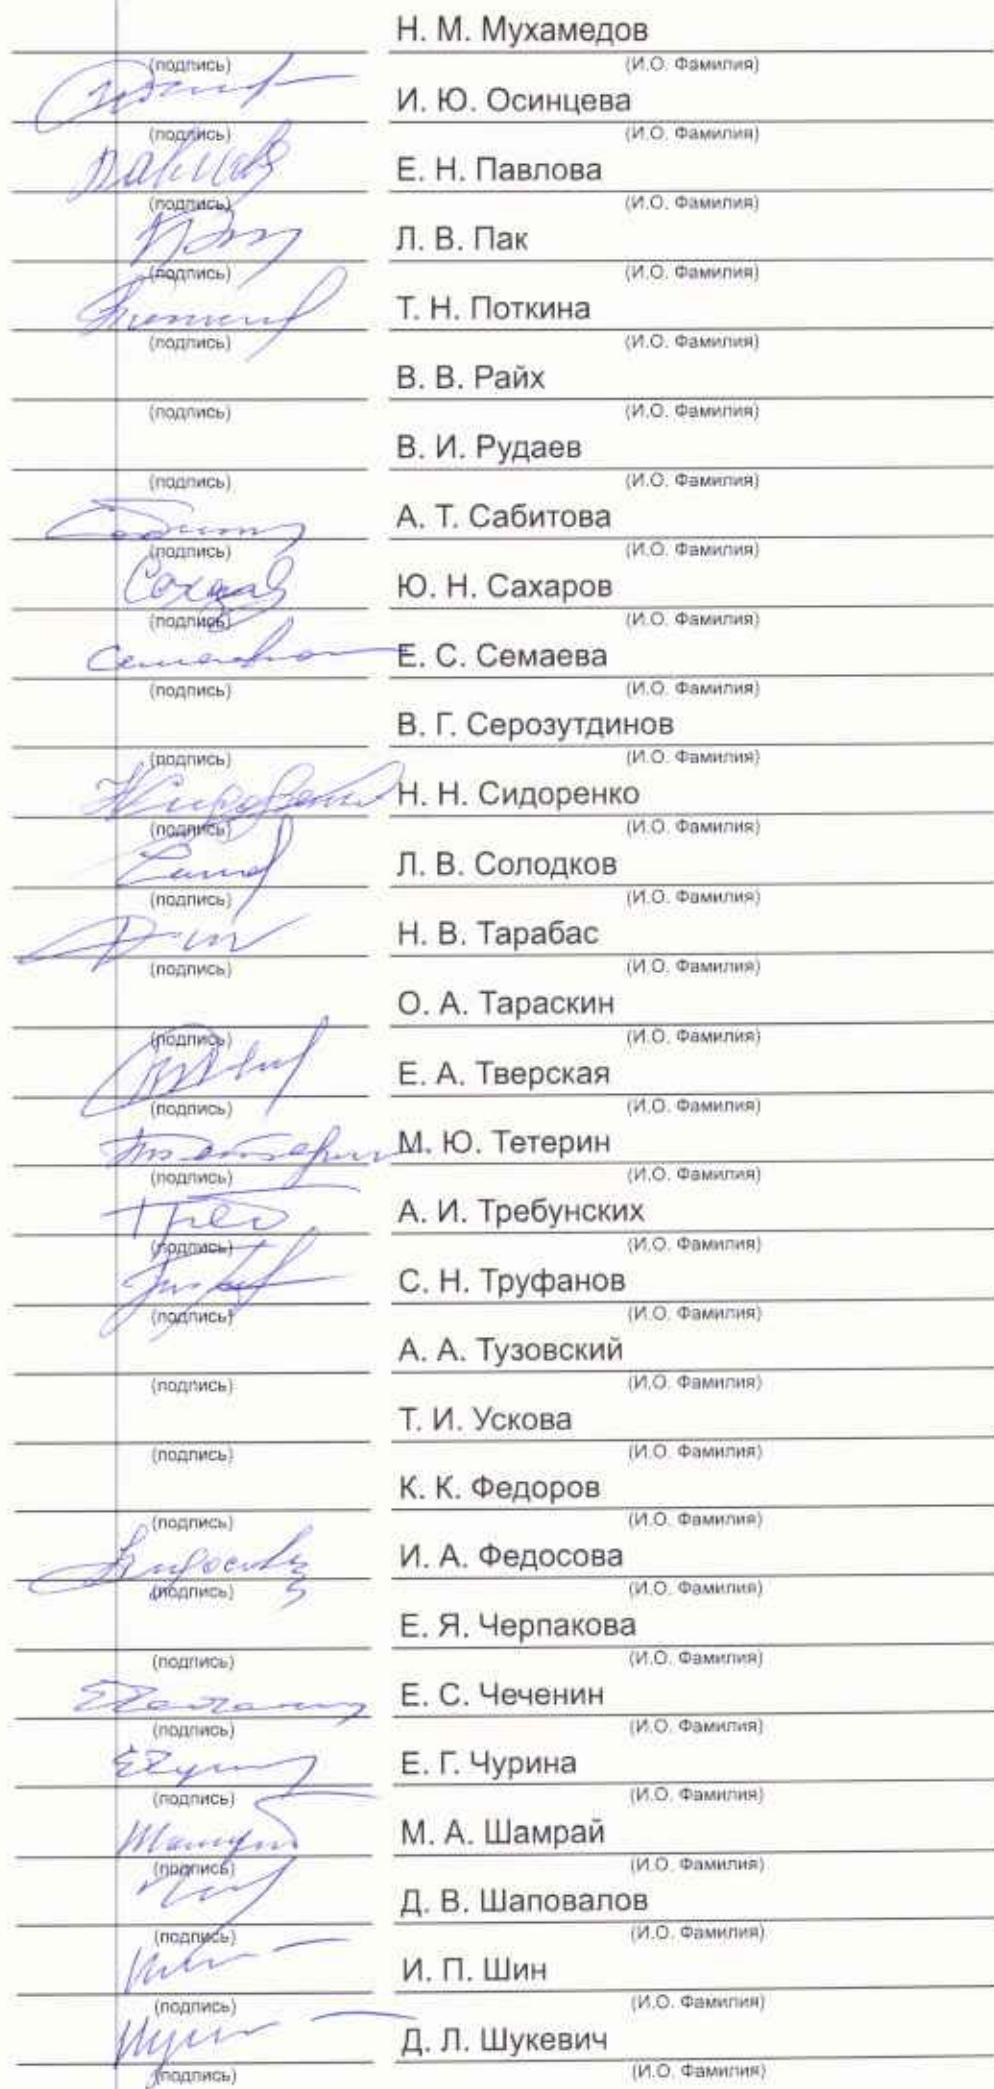 Н. М. Мухамедов
(подпись) (И.О. Фамилия)
И. Ю. Осинцева
(подпись) (И.О. Фамилия)
Е. Н. Павлова
(подпись) (И.О. Фамилия)
Л. В. Пак
(подпись) (И.О. Фамилия)
Т. Н. Поткина
(подпись) (И.О. Фамилия)
В. В. Райх
(подпись) (И.О. Фамилия)
В. И. Рудаев
(подпись) (И.О. Фамилия)
А. Т. Сабитова
(подпись) (И.О. Фамилия)
Ю. Н. Сахаров
(подпись) (И.О. Фамилия)
Е. С. Семаева
(подпись) (И.О. Фамилия)
В. Г. Серозутдинов
(подпись) (И.О. Фамилия)
Н. Н. Сидоренко
(подпись) (И.О. Фамилия)
Л. В. Солодков
(подпись) (И.О. Фамилия)
Н. В. Тарабас
(подпись) (И.О. Фамилия)
О. А. Тараскин
(подпись) (И.О. Фамилия)
Е. А. Тверская
(подпись) (И.О. Фамилия)
М. Ю. Тетерин
(подпись) (И.О. Фамилия)
А. И. Требунских
(подпись) (И.О. Фамилия)
С. Н. Труфанов
(подпись) (И.О. Фамилия)
А. А. Тузовский
(подпись) (И.О. Фамилия)
Т. И. Ускова
(подпись) (И.О. Фамилия)
К. К. Федоров
(подпись) (И.О. Фамилия)
И. А. Федосова
(подпись) (И.О. Фамилия)
Е. Я. Черпакова
(подпись) (И.О. Фамилия)
Е. С. Чеченин
(подпись) (И.О. Фамилия)
Е. Г. Чурина
(подпись) (И.О. Фамилия)
М. А. Шамрай
(подпись) (И.О. Фамилия)
Д. В. Шаповалов
(подпись) (И.О. Фамилия)
И. П. Шин
(подпись) (И.О. Фамилия)
Д. Л. Шукевич
(подпись) (И.О. Фамилия)